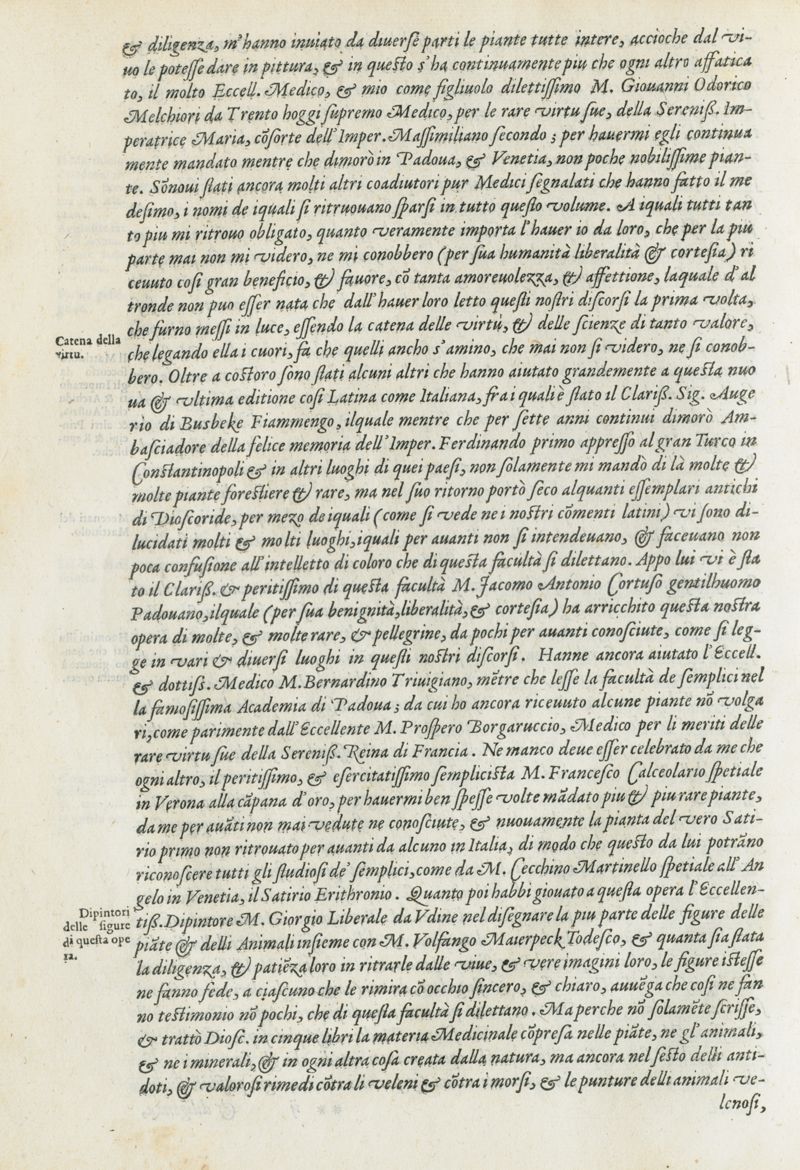 & diligenza, m'hanno inuiato da diuerſe parti le piante tutte intere, accioche dal vi-
uo le poteſſe dare in pittura, & in queſto s'ha continuamente piu che ogni altro affatica
to, il molto Eccell. Medico, & mio come figliuolo dilettiſſimo M. Giouanni Odorico
Melchiori da Trento hoggi ſupremo Medico, per le rare virtu ſue, della Sereniß. Im-
peratrice Maria, cõſorte dell'Imper. Maſſimiliano ſecondo; per hauermi egli continua
mente mandato mentre che dimorò in Padoua, & Venetia, non poche nobiliſſime pian-
te. Sõnoui ſtati ancora molti altri coadiutori pur Medici ſegnalati che hanno fatto il me
deſimo, i nomi de iquali ſi ritruouano ſparſi in tutto queſto volume. A iquali tutti tan
to piu mi ritrouo obligato, quanto veramente importa l'hauer io da loro, che per la piu
parte mai non mi videro, ne mi conobbero (per ſua humanità liberalità & corteſia) ri
ceuuto coſi gran beneficio, & fauore, cõ tanta amoreuolezza, & affettione, laquale d'al
tronde non puo eſſer nata che dall'hauer loro letto queſti noſtri diſcorſi la prima volta,
che furno meſſi in luce, eſſendo la catena delle virtù, & delle ſcienze di tanto valore,
Catena della
virtu.
che legando ella i cuori, fa che quelli ancho s'amino, che mai non ſi videro, ne ſi conob-
bero. Oltre a coſtoro ſono ſtati alcuni altri che hanno aiutato grandemente a queſta nuo
ua & vltima editione coſi Latina come Italiana, fra i quali è ſtato il Clariß. Sig. Auge
rio di Busbeke Fiammengo, ilquale mentre che per ſette anni continui dimorò Am-
baſciadore della felice memoria dell'Imper. Ferdinando primo appreſſo al gran Turco in
Conſtantinopoli & in altri luoghi di quei paeſi, non ſolamente mi mandò di là molte &
molte piante foreſtiere & rare, ma nel ſuo ritorno portò ſeco alquanti eſſemplari antichi
di Dioſcoride, per mezo de iquali (come ſi vede ne i noſtri cõmenti latini) vi ſono di-
lucidati molti & molti luoghi, iquali per auanti non ſi intendeuano, & faceuano non
poca confuſione all'intelletto di coloro che di queſta facultà ſi dilettano. Appo lui vi è ſta
to il Clariß. & peritiſſimo di queſta facultà M. Jacomo Antonio Cortuſo gentilhuomo
Padouano, ilquale (per ſua benignità, liberalità, & corteſia) ha arricchito queſta noſtra
opera di molte, & molte rare, & pellegrine, da pochi per auanti conoſciute, come ſi leg-
ge in vari & diuerſi luoghi in queſti noſtri diſcorſi. Hanne ancora aiutato l'Eccell.
& dottiß. Medico M. Bernardino Triuigiano, mẽtre che leſſe la facultà de ſemplici nel
la famoſiſſima Academia di Padoua; da cui ho ancora riceuuto alcune piante nõ volga
ri, come parimente dall'Eccellente M. Proſpero Borgaruccio, Medico per li meriti delle
rare virtu ſue della Sereniß. Reina di Francia. Ne manco deue eſſer celebrato da me che
ogni altro, il peritiſſimo, & eſercitatiſſimo ſempliciſta M. Franceſco Calceolario ſpetiale
in Verona alla cãpana d'oro, per hauermi ben ſpeſſe volte mãdato piu & piu rare piante,
da me per auãti non mai vedute ne conoſciute, & nuouamente la pianta del vero Sati-
rio primo non ritrouato per auanti da alcuno in Italia, di modo che queſto da lui potrãno
riconoſcere tutti gli ſtudioſi de' ſemplici, come da M. Cecchino Martinello ſpetiale all'An
gelo in Venetia, il Satirio Erithronio. Quanto poi habbi giouato a queſta opera l'Eccellen-
Dipintori
delle figure
di queſta ope
ra.
tiß. Dipintore M. Giorgio Liberale da Vdine nel diſegnare la piu parte delle figure delle
piãte & delli Animali inſieme con M. Volfango Maierpeck Todeſco, & quanta ſia ſtata
la diligenza, & patiẽza loro in ritrarle dalle viue, & vere imagini loro, le figure iſteſſe
ne fanno fede, a ciaſcuno che le rimira cõ occhio ſincero, & chiaro, auuẽga che coſi ne fan
no teſtimonio nõ pochi, che di queſta facultà ſi dilettano. Ma perche nõ ſolamẽte ſcriſſe,
& trattò Dioſc. in cinque libri la materia Medicinale cõpreſa nelle piãte, ne gl'animali,
& ne i minerali, & in ogni altra coſa creata dalla natura, ma ancora nel ſeſto delli anti-
doti, & valoroſi rimedi cõtra li veleni & cõtra i morſi, & le punture delli animali ve-
lenoſi,